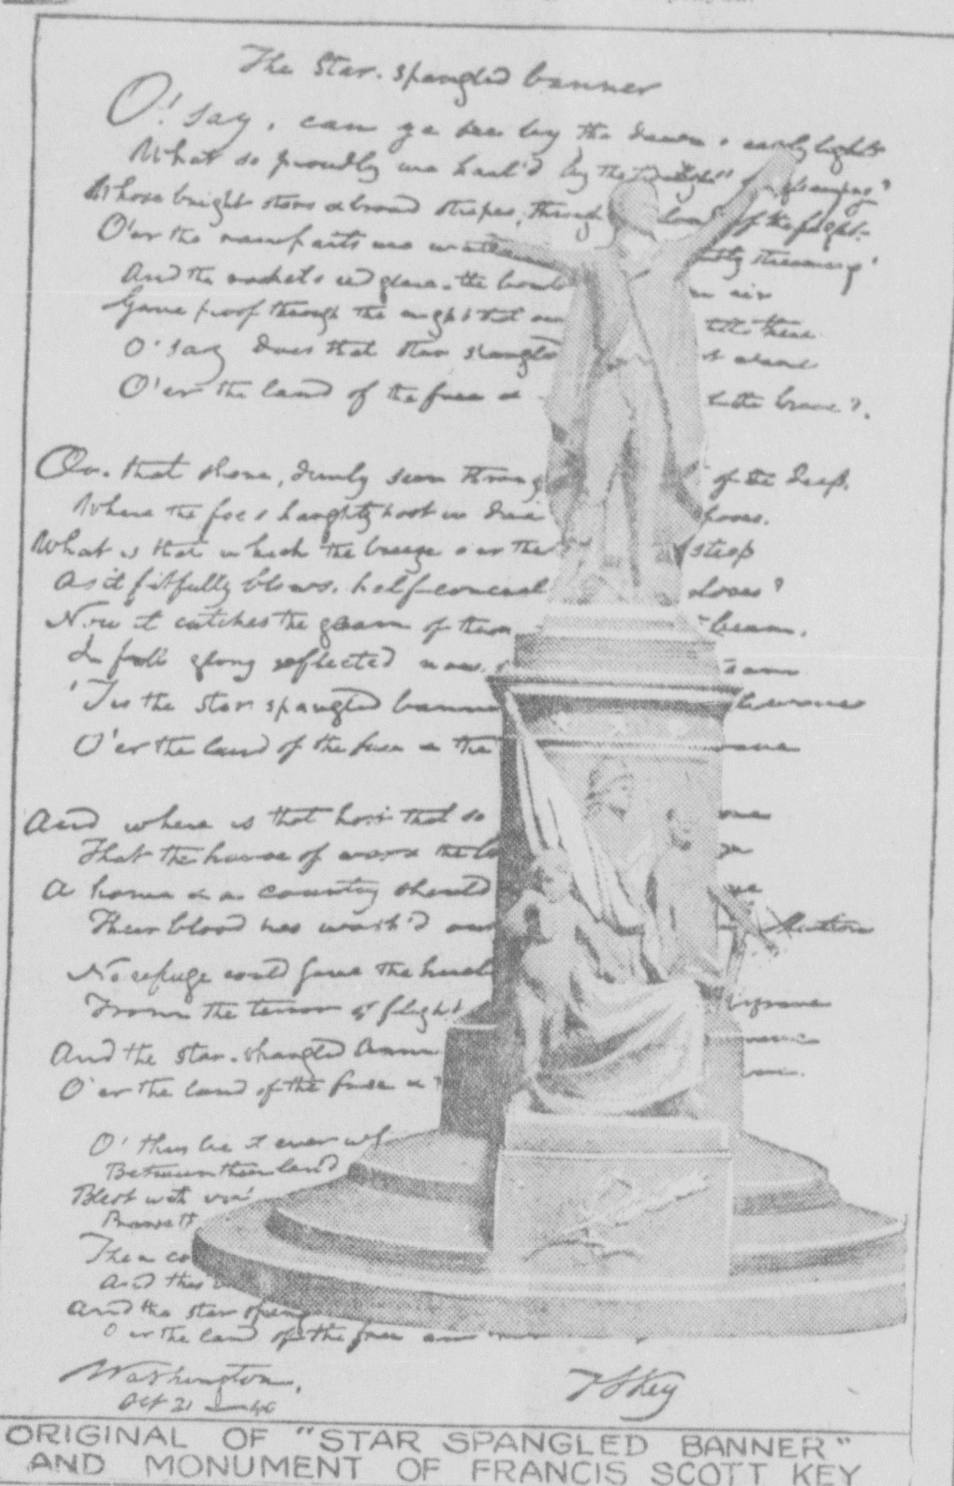 The Star-spangled banner
O! say, can ye see by the dawn's early light
What so proudly we hail'd by the twilight's gleaming?
Whose bright stars & broad stripes, through of the fight
O'er the ramparts we watch streaming?
And the rockets red glare, the bomb in air
Gave proof through the night that our still there
O! say does that star spangled wave
O'er the land of the free & the brave?
On that shore, dimly seen through of the deep,
Where the foe's haughty host in poses,
What is that which the breeze o'er the steep
As it fitfully blows, half conceal closes?
Now it catches the gleam of the beam,
In full glory reflected now
'Tis the star spangled banner
O'er the land of the free & the
And where is that host that so
That the havoc of war & the
A home & a country should
Their blood has wash'd our
No refuge could save the
From the terror of flight
And the star-spangled
O'er the land of the free &
O! thus be it ever
Between their land
Blest with
Then
And this
And the star
O'er the land of the free
Washington,
Oct 21
F S Key
ORIGINAL OF "STAR SPANGLED BANNER"
AND MONUMENT OF FRANCIS SCOTT KEY